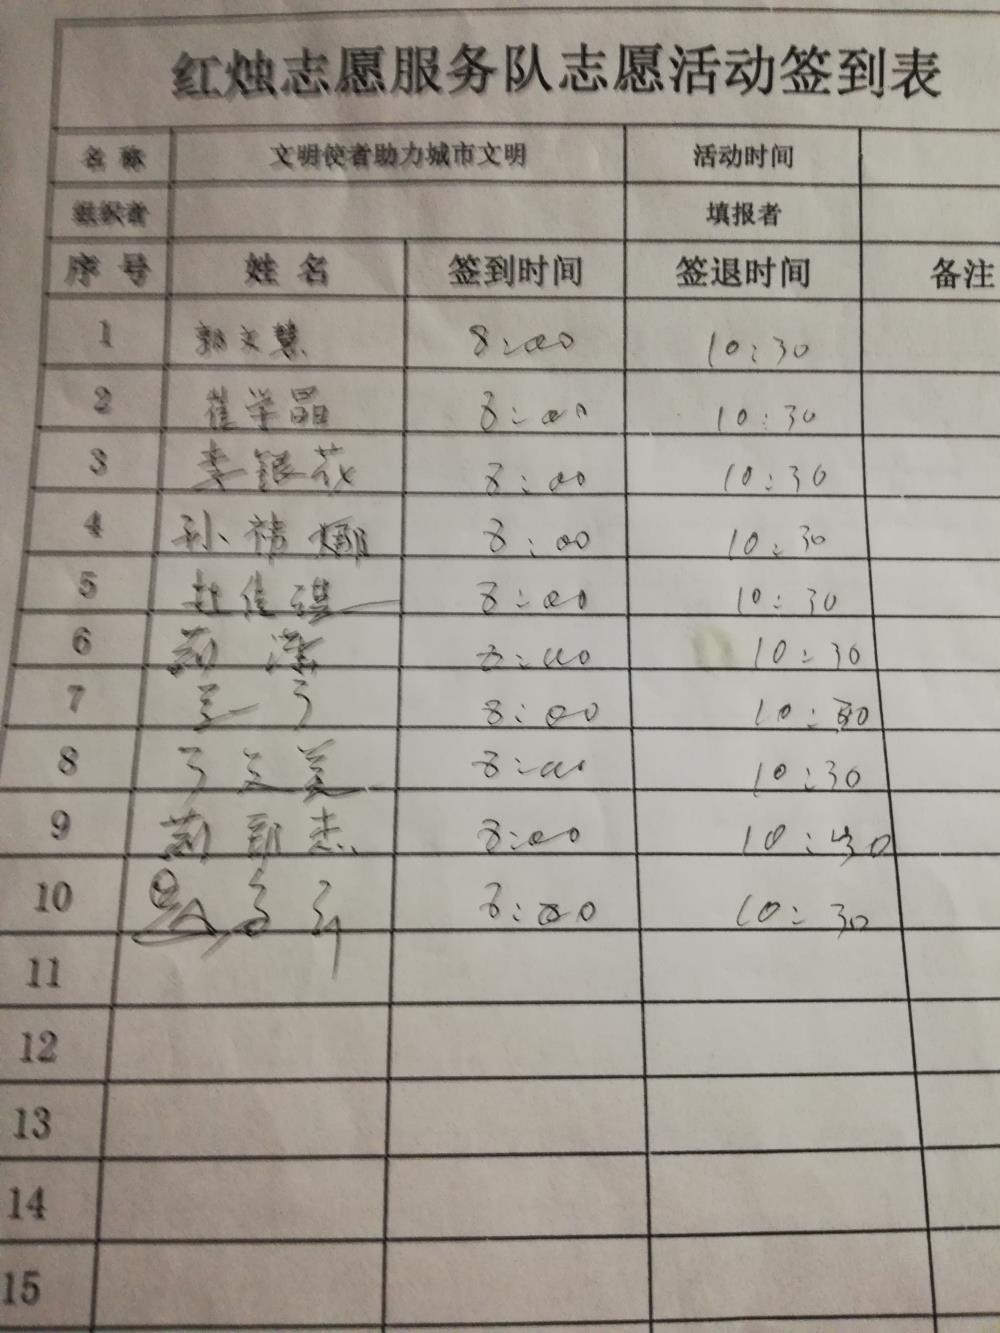 红烛志愿服务队志愿活动签到表
名 称 文明使者助力城市文明 活动时间
组织者 填报者
序 号 姓 名 签到时间 签退时间 备注
1 郭文慧 8:00 10:30
2 崔学晶 8:00 10:30
3 李银茂 8:00 10:30
4 孙 8:00 10:30
5 杜佳琪 8:00 10:30
6 8:00 10:30
7 8:00 10:30
8 8:00 10:30
9 8:00 10:30
10 8:00 10:30
11
12
13
14
15